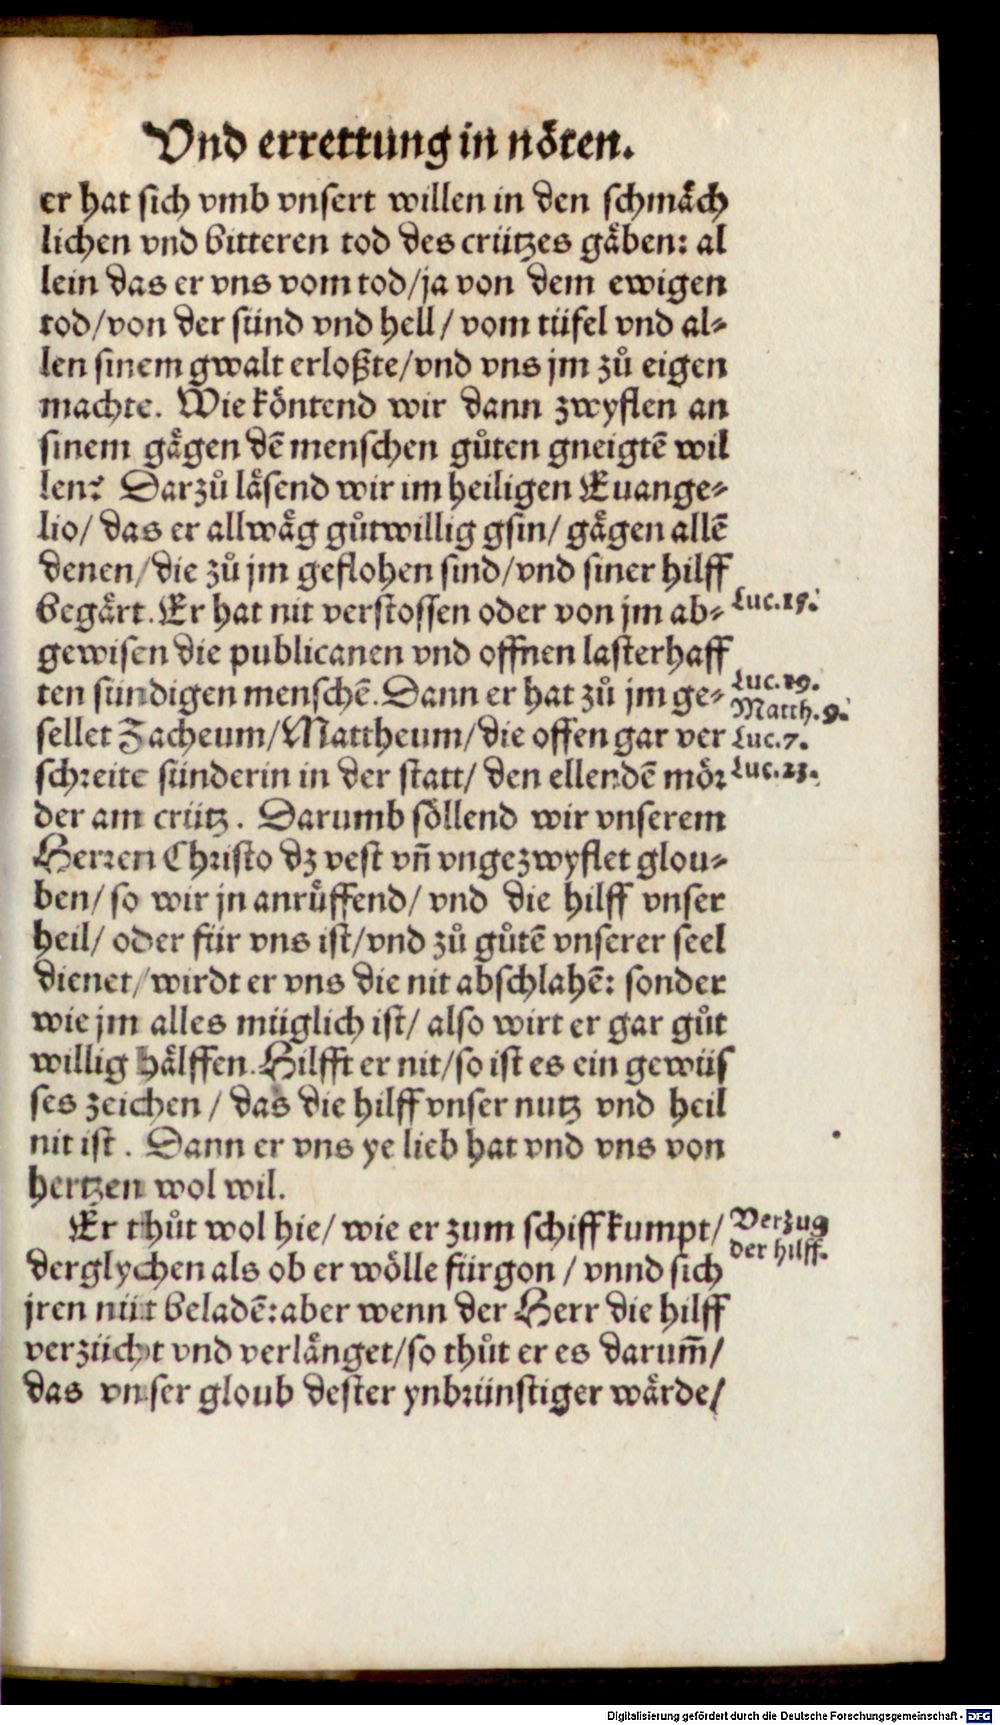 Vnd errettung in nöten.
er hat sich vmb vnsert willen in den schmäch
lichen vnd bitteren tod des crützes gäben: al
lein das er vns vom tod/ja von dem ewigen
tod/von der sünd vnd hell/ vom tüfel vnd al⸗
len sinem gwalt erloßte/vnd vns jm zů eigen
machte. Wie köntend wir dann zwyflen an
sinem gägen dē menschen gůten gneigtē wil
len? Darzů läsend wir im heiligen Euange⸗
lio/ das er allwäg gůtwillig gsin/ gägen allē
denen/die zů jm geflohen sind/vnd siner hilff
begärt. Er hat nit verstossen oder von jm ab⸗
Luc.15.
gewisen die publicanen vnd offnen lasterhaff
ten sündigen menschē. Dann er hat zů jm ge⸗
Luc.19.
Matth.9.
sellet Zacheum/Mattheum/die offen gar ver
Luc.7.
schreite sünderin in der statt/ den ellendē mör
Luc.23.
der am crütz. Darumb söllend wir vnserem
Herren Christo dz vest vñ vngezwyflet glou⸗
ben/ so wir jn anrůffend/ vnd die hilff vnser
heil/ oder für vns ist/vnd zů gůtē vnserer seel
dienet/wirdt er vns die nit abschlahē: sonder
wie jm alles müglich ist/ also wirt er gar gůt
willig hälffen. Hilfft er nit/so ist es ein gewüs
ses zeichen/ das die hilff vnser nutz vnd heil
nit ist. Dann er vns ye lieb hat vnd vns von
hertzen wol wil.
Er thůt wol hie/ wie er zum schiff kumpt/
Verzug
der hilff.
derglychen als ob er wölle fürgon/ vnnd sich
jren nüt beladē: aber wenn der Herr die hilff
verzücht vnd verlänget/so thůt er es darum̄/
das vnser gloub dester ynbrünstiger wärde/
Digitalisierung gefördert durch die Deutsche Forschungsgemeinschaft - DFG